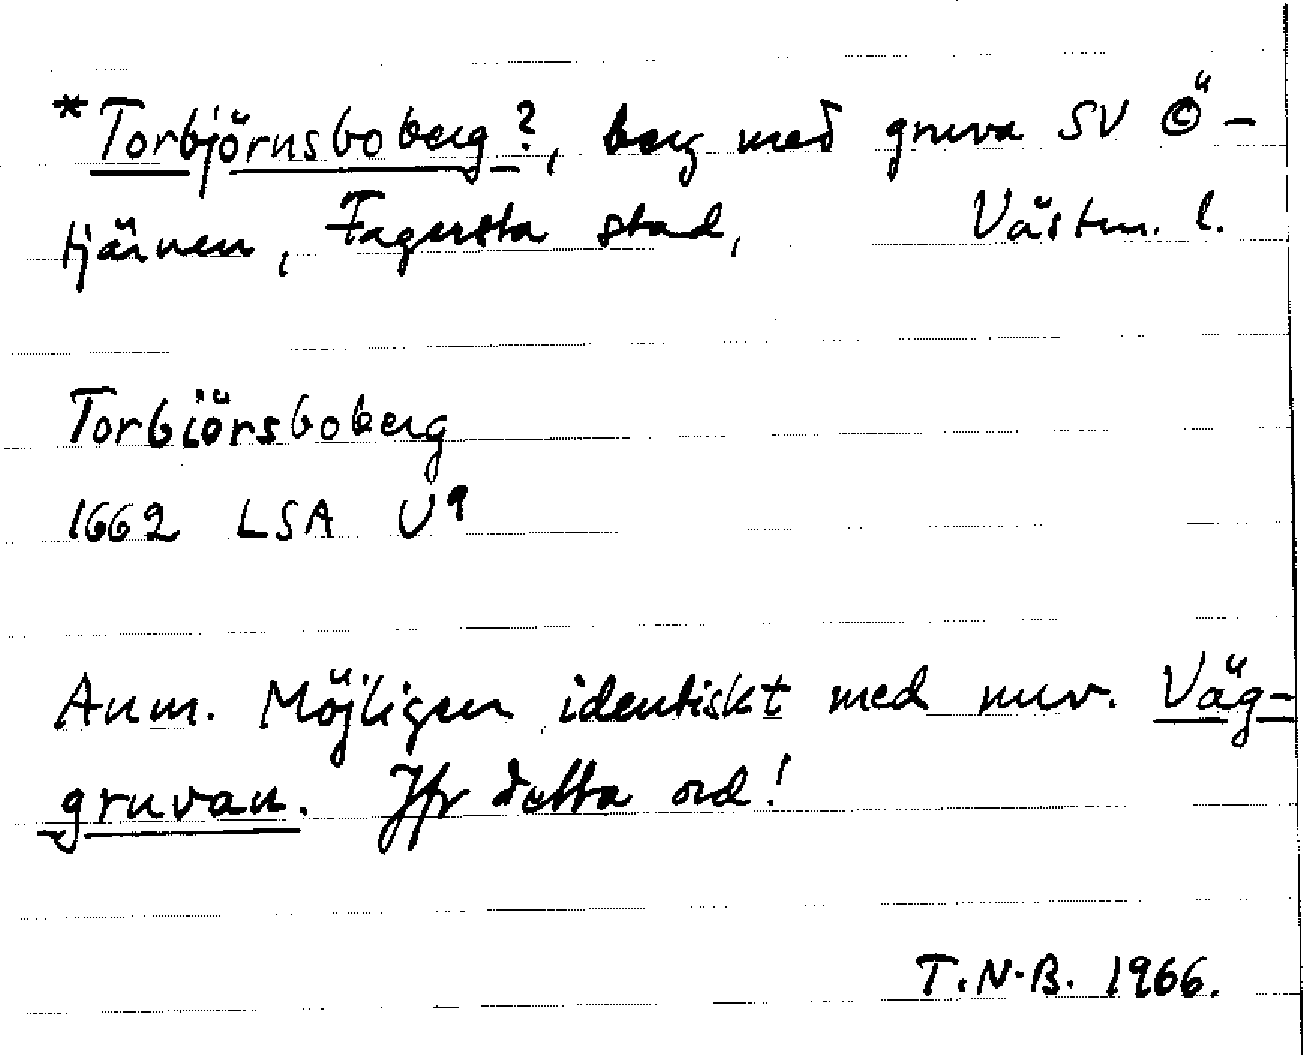 *Torbjörnsboberg?, berg med gruva SV Ö-
tjärnen, Fagersta stad, Västm. l.
Torbiörsboberg
1662 LSA U9
Anm. Möjligen identiskt med nuv. Väg-
gruvan. Jfr detta ord!
T.N-B. 1966.